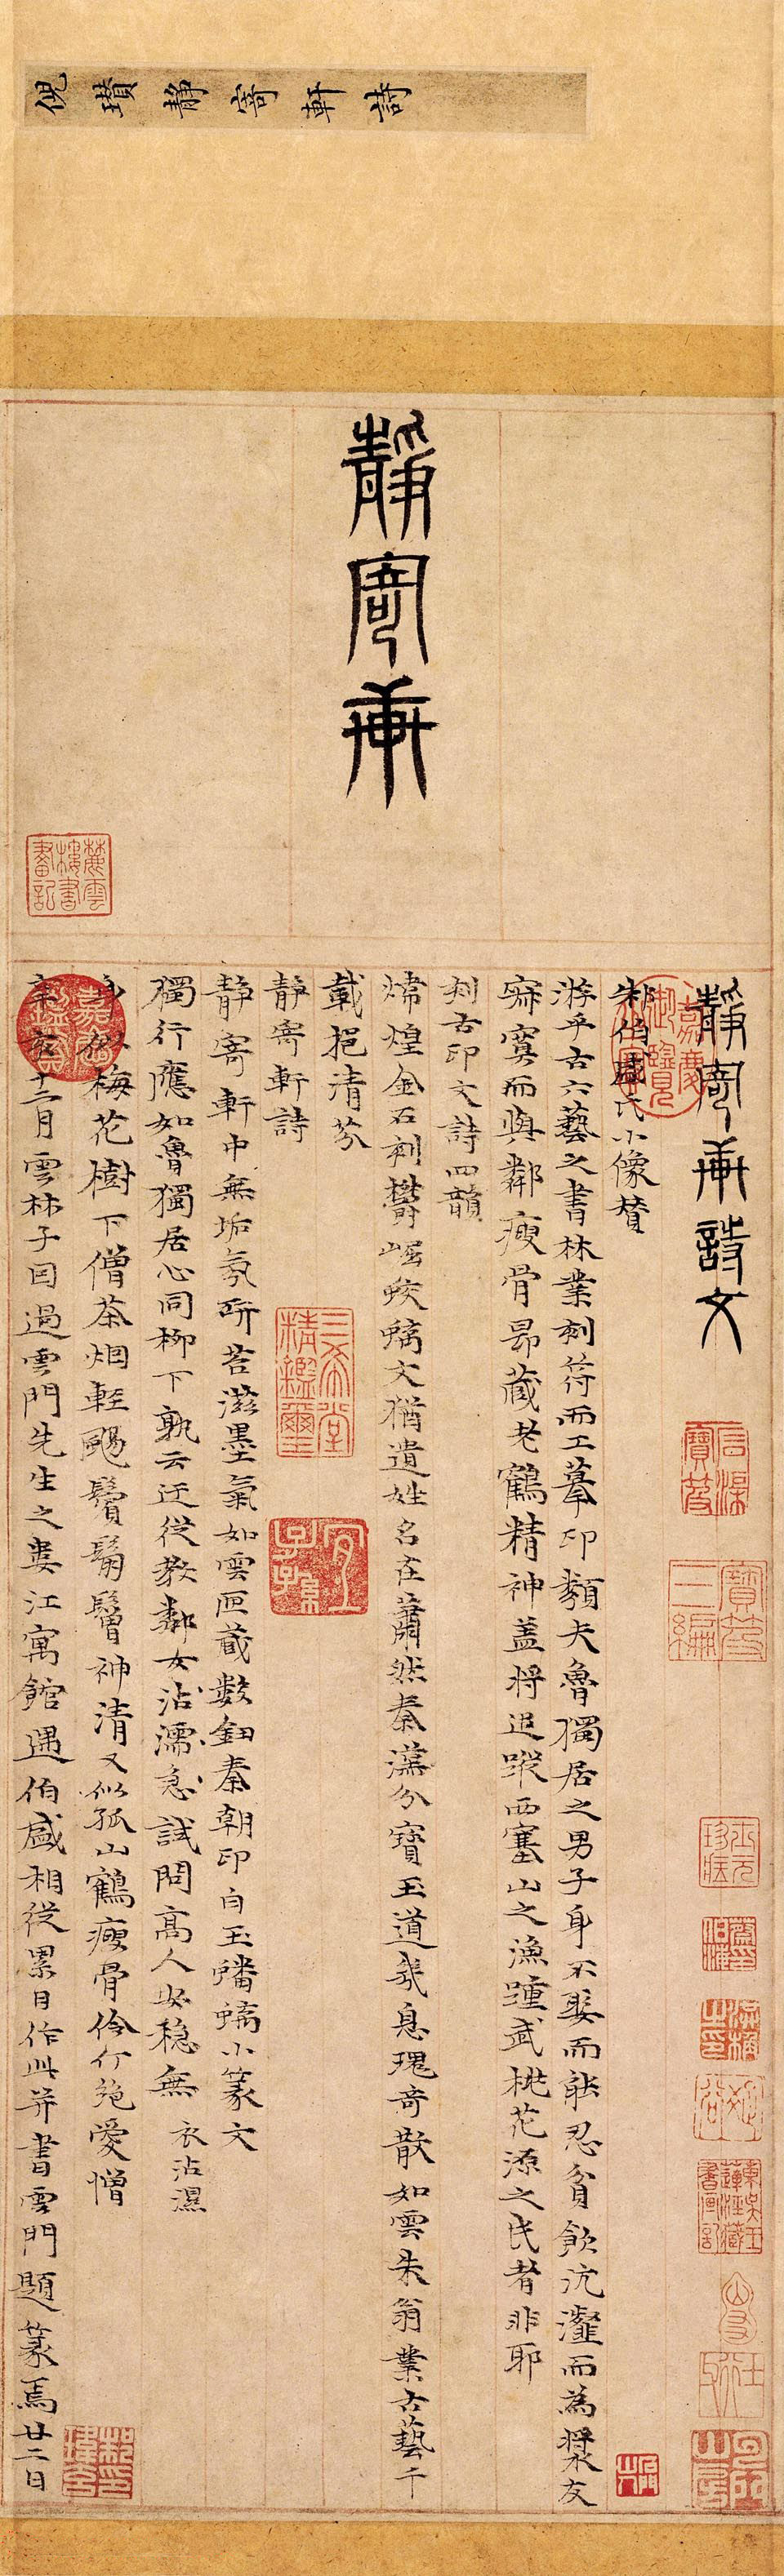 倪瓚靜寄軒詩
靜寄軒
靜寄軒詩文
朱伯盛氏小像贊
游乎古六藝之書林業刻符而工摹印類夫魯獨居之男子身不娶而能忍貧飲沆瀣而為漿友
寂寞而與鄰瘦骨昂藏老鶴精神蓋將追蹤西塞山之漁踵武桃花源之民者非耶
刻古印文詩四韻
煒煌金石刻鬱崛蛟螭文猶遺姓名在蕭然秦漢分寶玉道我息瑰奇散如雲朱翁業古藝千
載挹清芬
靜寄軒詩
靜寄軒中無垢氛研苔滋墨氣如雲匣藏數鈕秦朝印白玉蟠螭小篆文
獨行應如魯獨居心同柳下孰云迂從教鄰女沾濡急試問高人安穩無 衣沾濕
身似梅花樹下僧茶烟輕颺鬢鬅鬙神清又似孤山鶴瘦骨伶仃絕愛憎
辛亥十二月雲林子因過雲門先生之婁江寓館遇伯盛相從累日作此并書雲門題篆焉廿二日
麓雲樓書畫記
嘉慶御覽之寶
嘉慶鑑賞
三希堂精鑑璽
宜子孫
石渠寶笈
寶笈三編